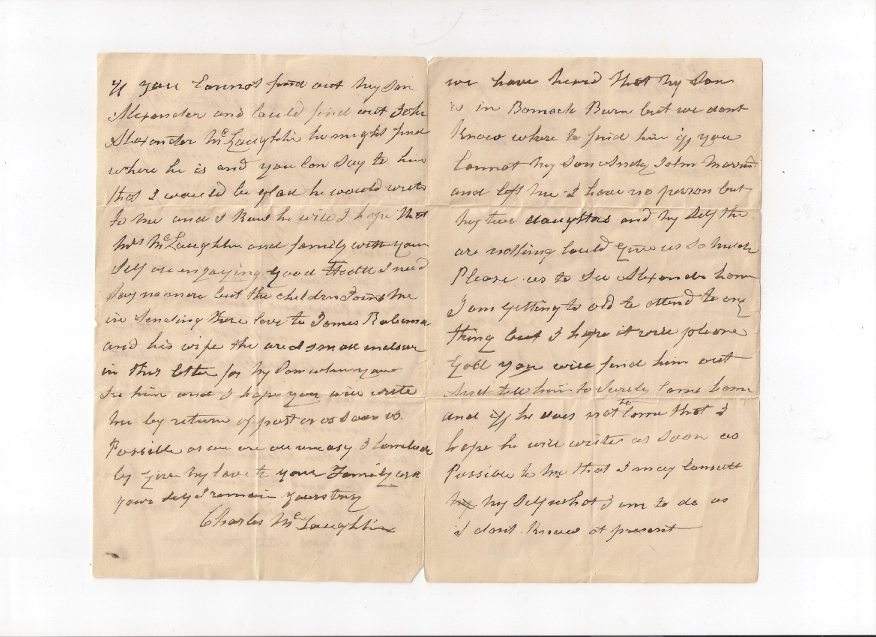 if you Cannot find out my Son
Alexander and Could find out John
Alexander McLaughlin he might find
where he is and you Can Say to him
that I would be glad he would write
to me and I he will I hope that
Mrs McLaughlin and family with your
Self are enjoying good Health I need
Say no more but the children Joins me
in Sending there love to James
and his wife the
in this letter for my Son when you
See him and I hope you will write
me by return of post or as Soon as
Possible as we are all uneasy I
by give my love to your Family and
your Self I remain yours truly
Charles McLaughlin
we have heard that my Son
is in Burn but we dont
know where to find him if you
Cannot my Son John Married
and left me I have no person but
my two daughters and my Self the
are nothing Could give us So much
Please us to See Alexander home
I am getting to old to attend to any
thing but I hope it will please
God you will find him out
And tell him to Come home
and if he does not to Come that I
hope he will write as Soon as
Possible to me that I may
my Self what I am to do as
i dont know at present